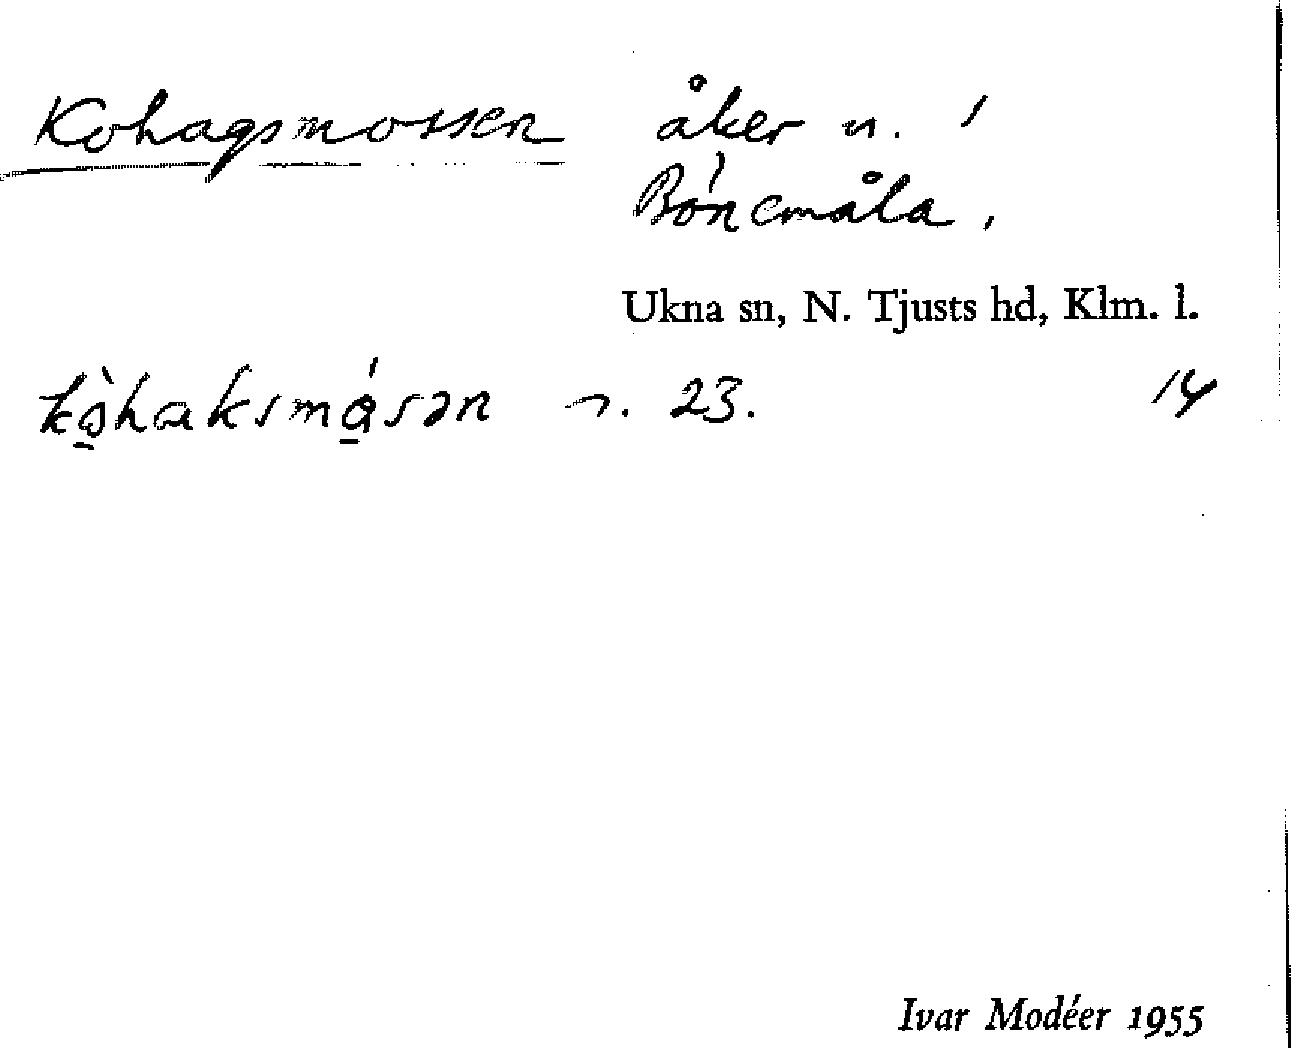 Kohagsmossen åker n. /
Bónemåla.
Ukna sn, N. Tjusts hd, Klm. l.
kò̱haksmá̱sən n. 23. 14
Ivar Modéer 1955